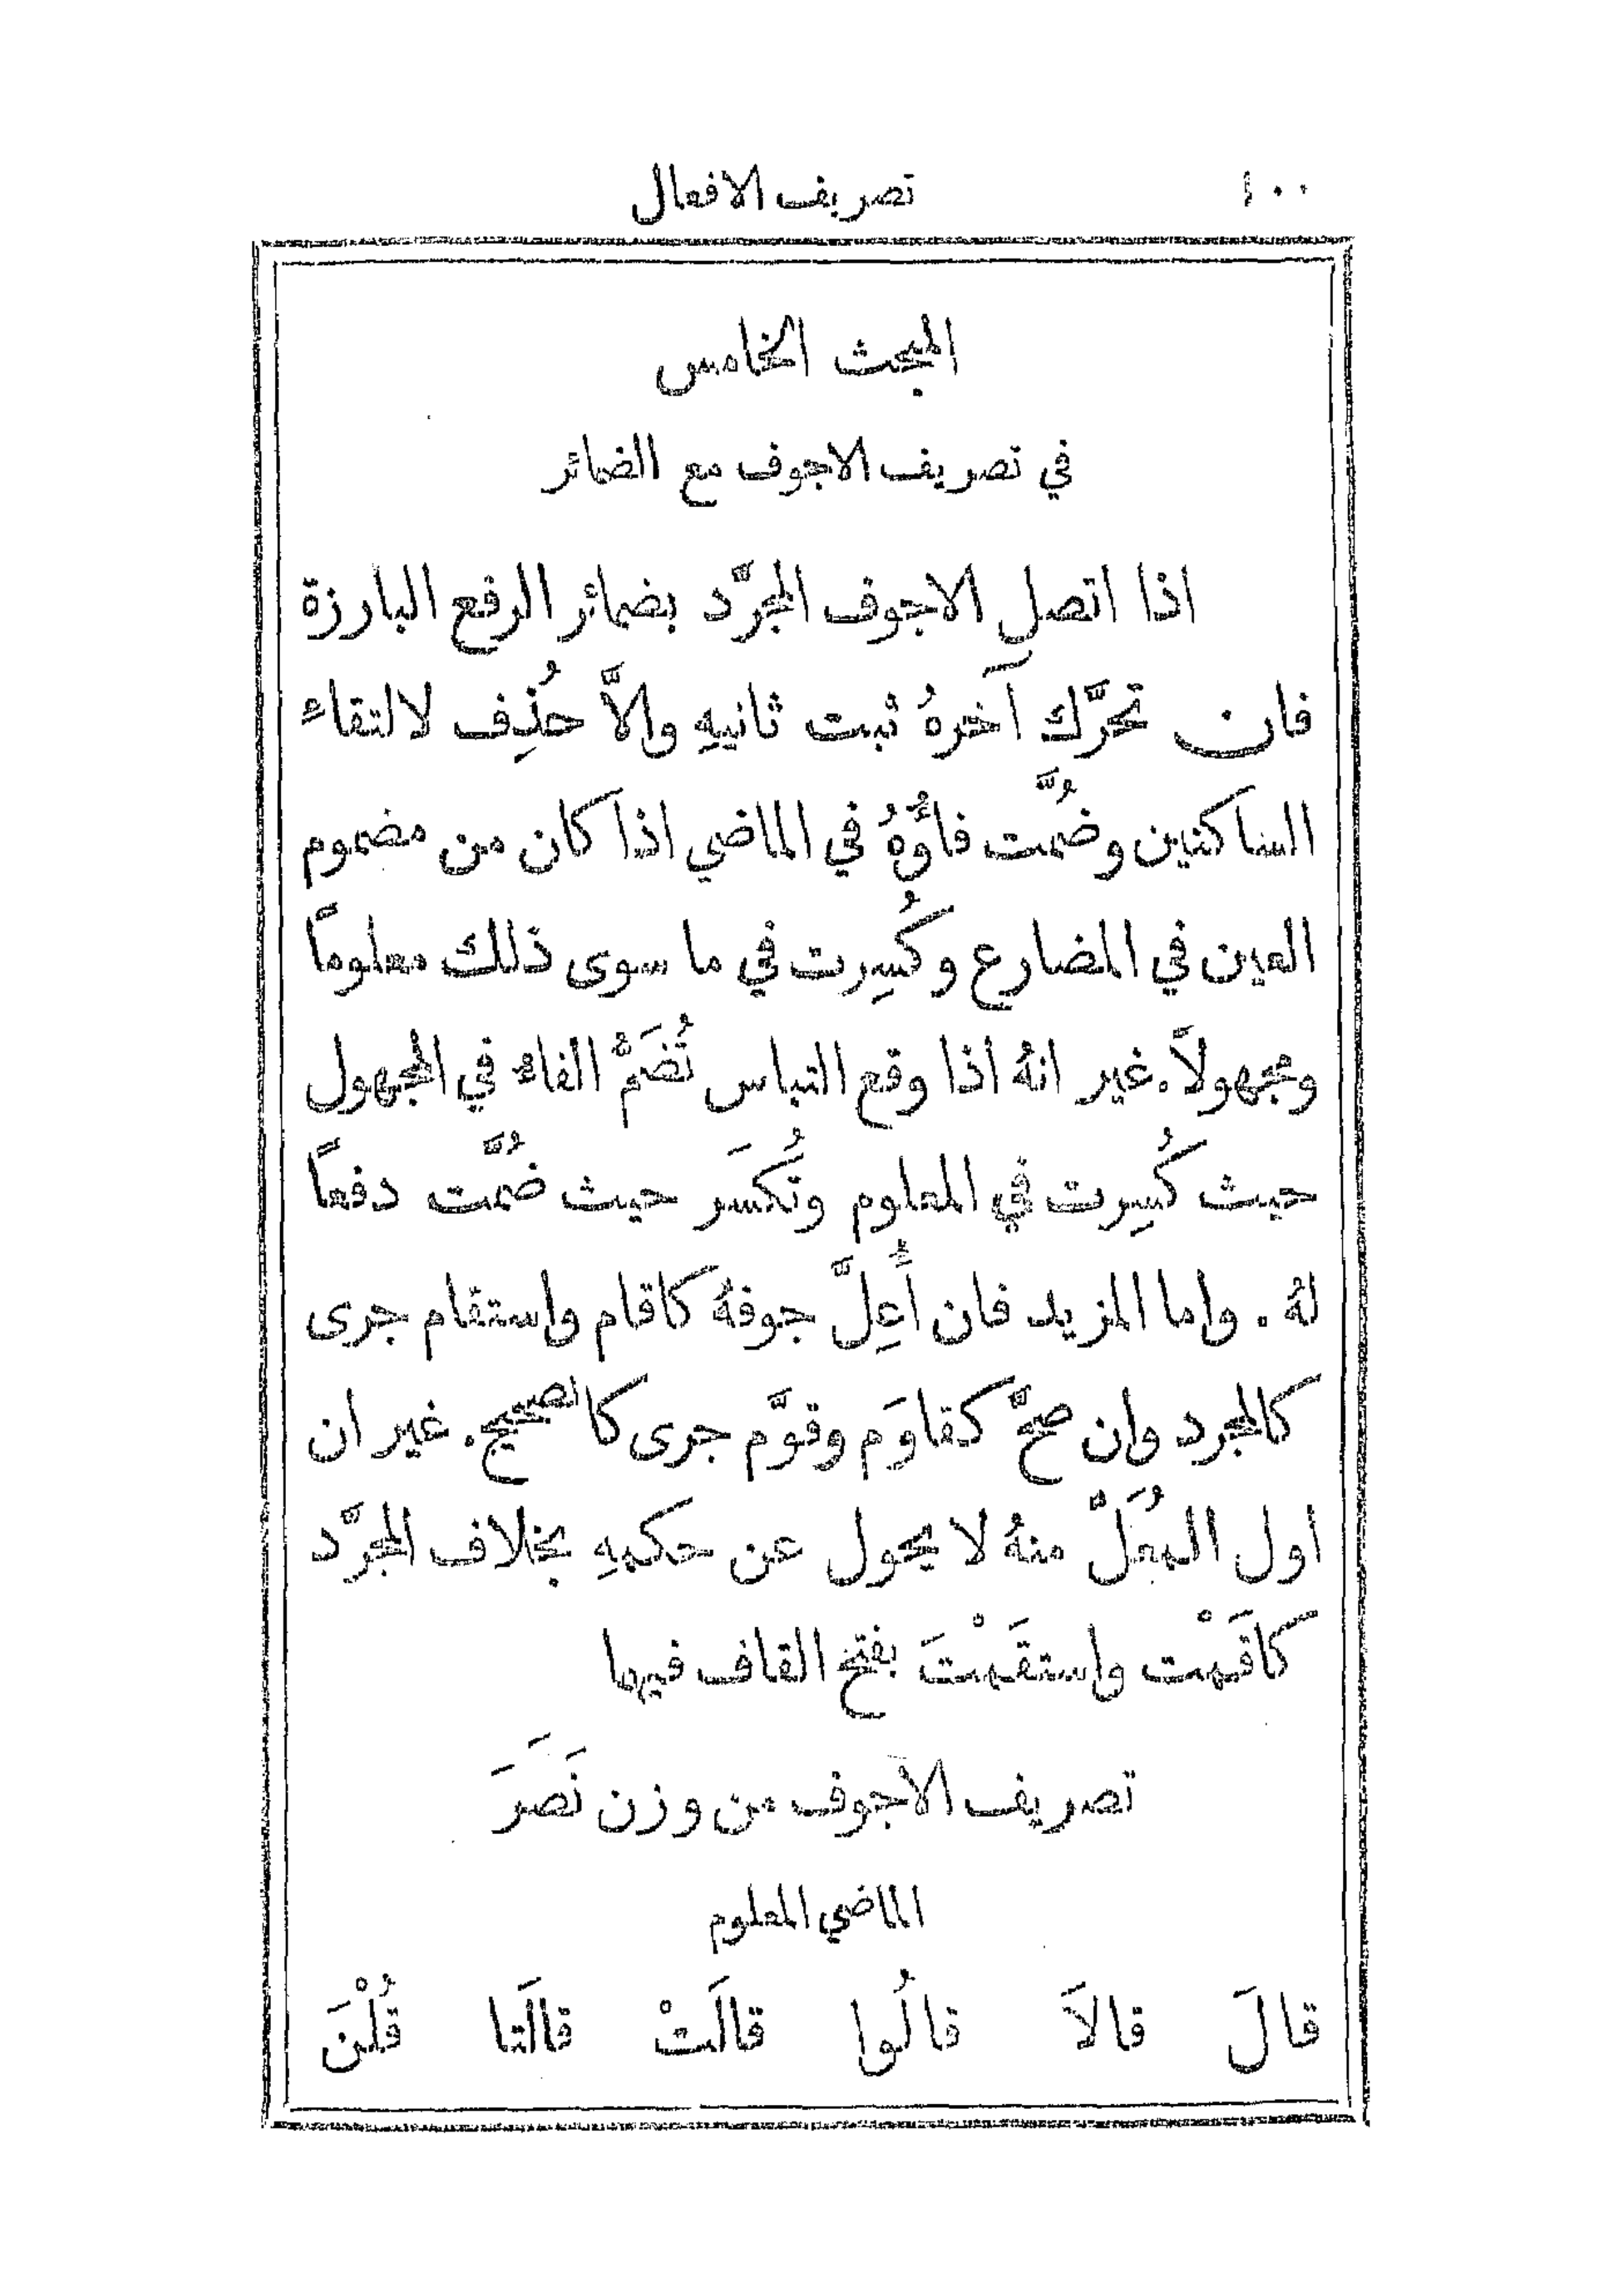 ١٠٠ تصريف الافعال
المبحث الخامس
في تصريف الاجوف مع الضمائر
اذا اتصل الاجوف المجرَّد بضمائر الرفع البارزة
فان تحرَّك آخرهُ ثبت ثانيهِ والاَّ حُذِف لالتقاء
الساكنين وضُمَّت فاؤُهُ في الماضي اذا كان من مضموم
العين في المضارع وكُسِرت في ما سوى ذلك معلوماً
ومجهولاً. غير انهُ اذا وقع التباس تُضَمُّ الفاءُ في المجهول
حيث كُسِرت في المعلوم وتُكسَر حيث ضُمَّت دفعاً
لهُ. واما المزيد فان أُعِلَّ جوفهُ كاقام واستقام جرى
كالمجرد وان صحَّ كقاوَم وقوَّم جرى كالصحيح. غير ان
اول المُعَلّ منهُ لا يحول عن حكمهِ بخلاف المجرَّد
كاقَمْت واستقَمْتَ بفتح القاف فيهما
تصريف الاجوف من وزن نَصَرَ
الماضي المعلوم
قالَ قالاَ قالُوا قالَتْ قالَتا قُلْنَ